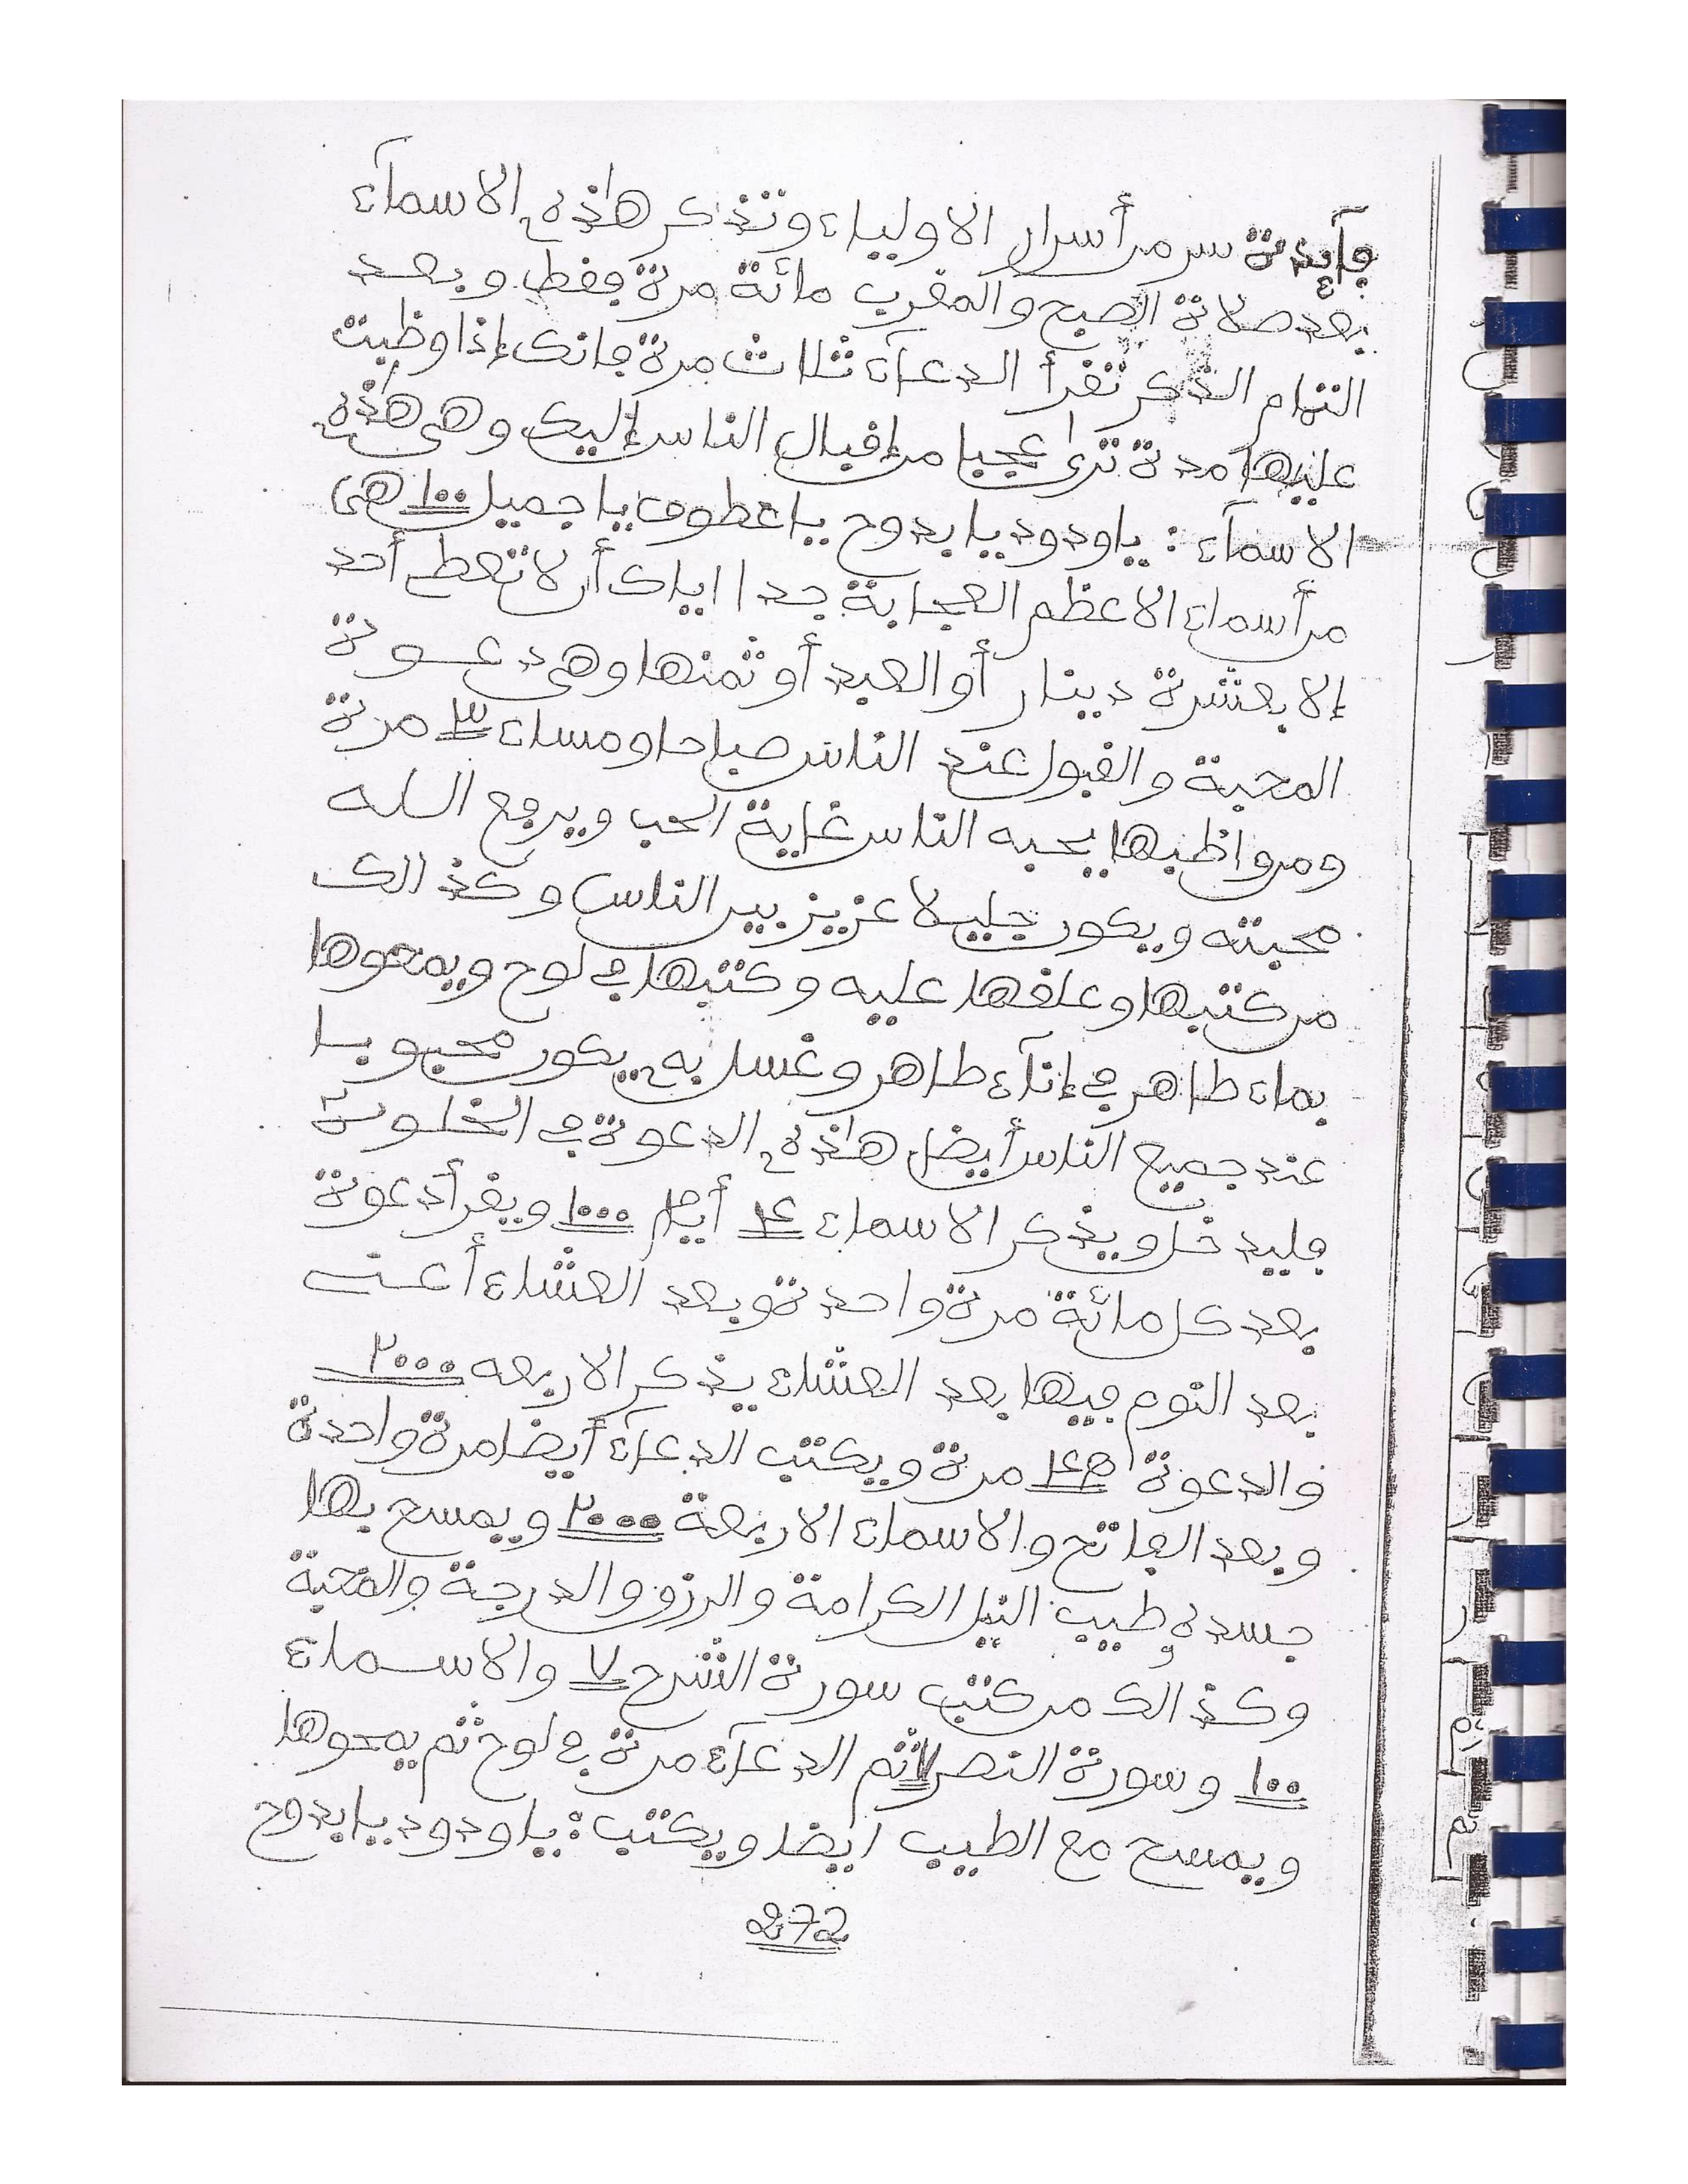 فآيدة سر من أسرار الاولياء وتذكر هاذه الاسمآء
بعد صلاة الصبح والمغرب مائة مرة فقط وبعد
التمام الذكر تقرأ الدعآء ثلاث مرة فانك إذا وظبت
عليها مدة ترى عجبا من إقبال الناس إليك وهي هذه
الاسمآء : ياودود يا بدوح يا عطوف يا جميل ١٠٠ هي
من أسماء الاعظم العجابة جدا اياك أن لا تعط أحد
إلا بعشرة دينار أو العبد أو ثمنها وهي دعوة
المحبة والقبول عند الناس صباحا ومساء ٣ مرة
ومن واظبها يحبه الناس غاية الحب ويرجع الله
محبته ويكون جليلا عزيز بين الناس وكذالك
من كتبها وعلقها عليه وكتبها في لوح ويمحوها
بماء طاهر في إنآء طاهر وغسل به يكون محبوبا
عند جميع الناس أيضا هاذه الدعوة في الخلوة
فليدخل ويذكر الاسماء ٤ أيام ١٠٠٠ ويقرأ دعوة
بعد كل مائة مرة واحدة وبعد العشاء أعنى
بعد النوم فيها بعد العشاء يذكر الاربعه ٢٠٠٠
والدعوة مرة ويكتب الدعآء أيضا مرة واحدة
وبعد الفاتح والاسماء الاربعة ٢٠٠٠ ويمسح بها
جسده وطيب النيل الكرامة والرزق والدرجة والمحبة
وكذالك من كتب سورة الشرح ٧ والاسماء
١٠٠ وسورة النصر ٧ ثم الدعآء مرة في لوح ثم يمحوها
ويمسح مع الطيب ايضا ويكتب : يا ودود يا بدوح
272